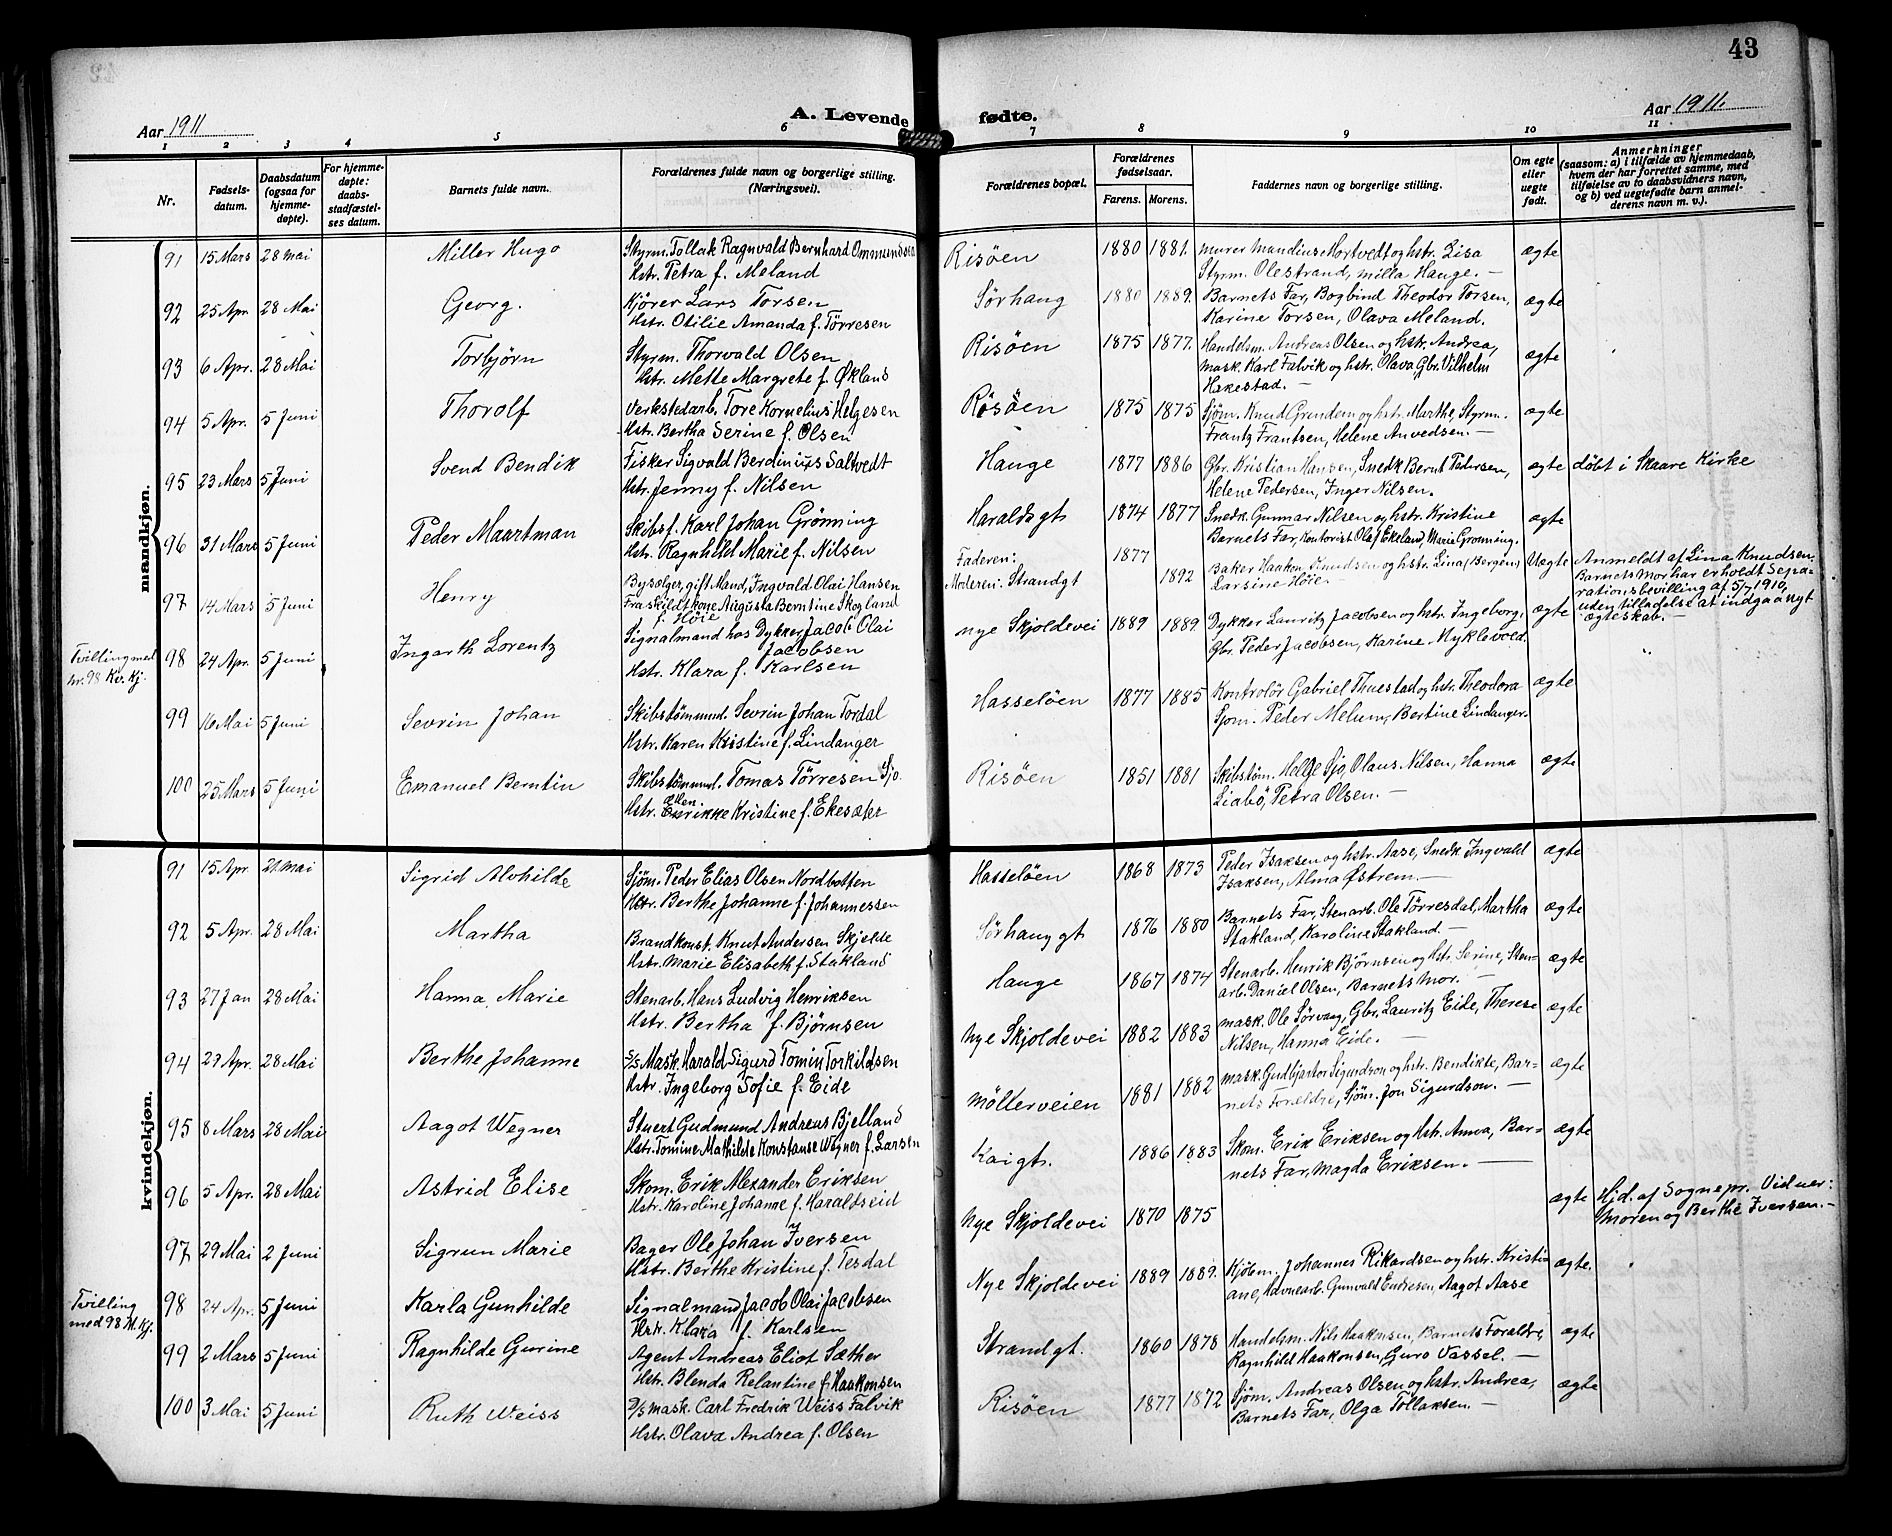 43
Aar 1911
A. Levende fødte.
Aar 1911.
1 2 3 4 5 6 7 8 9 10 11
Nr.
Fødsels-
datum.
Daabsdatum
(ogsaa for
hjemme-
døpte).
For hjemme-
døpte:
daabs-
stadfæstel-
ses datum.
Barnets fulde navn.
Forældrenes fulde navn og borgerlige stilling.
(Næringsvei).
Forældrenes bopæl.
Forældrenes
fødselsaar.
Farens. Morens.
Faddernes navn og borgerlige stilling.
Om egte
eller
uegte
født.
Anmerkninger
(saasom: a) i tilfælde av hjemmedaab,
hvem der har forrettet samme, med
tilføielse av to daabsvidners navn,
og b) ved uegtefødte barn anmel-
derens navn m. v.).
mandkjøn.
91 15 Mars 28 Mai Miller Hugo Styrm. Tollak Ragnvald Bernhard Ommundsen Risöen 1880 1881. Murer Mandius Mortvedt og hstr. Lisa ægte
Hstr. Petra f. Meland Styrm. Olestrand, Milla Hauge. —
92 25 Apr. 28 Mai Georg. Kjörer Lars Torsen Sörhaug 1880 1889. Barnets Far, Bogbind Theodor Torsen, ægte
Hstr. Otilie Amanda f. Törresen Karine Torsen, Olava Meland.
93 6 Apr. 28 Mai Torbjörn Styrm. Thorvald Olsen Risöen 1875 1877. Handelsm. Andreas Olsen og hstr. Andrea, ægte
Hstr. Mette Margrete f. Økland Mask. Karl Falvik og hstr. Olava, Gbr. Vilhelm
Hakestad. —
94 5 Apr. 5 Juni Thorolf Verkstedarb. Tore Kornelius Helgesen Risöen 1875 1875 Sjöm. Knud Grindem og hstr. Marthe, Styrm. ægte
Hstr. Bertha Serine f. Olsen Frantz Frantsen, Helene Anvedsen. —
95 23 Mars 5 Juni Svend Bendik Fisker Sigvald Berdinius Saltvedt Hauge 1877 1886 Gbr. Kristian Hansen, Snedk Bernt Pedersen, ægte döbt i Skaare Kirke
Hstr. Jenny f. Nilsen Helene Pedersen, Inger Nilsen.
96 31 Mars 5 Juni Peder Maartman Skibsf. Karl Johan Grönning Haraldsgt 1874 1877 Snedk. Gunnar Nilsen og hstr. Kristine ægte
Hstr. Ragnhild Marie f. Nilsen Barnets Far, Kontorist Olaf Ekeland, Marie Grönning.
97 14 Mars 5 Juni Henry Bysælger, gift Mand, Ingvald Olai Hansen Faderen: 1877 Baker Haakon Knudsen og hstr. Lina (Bergen) Uægte Anmeldt af Lina Knudsen,
Fraskildt kone Augusta Berntine Skogland Moderen: Strandgt 1892 Larsine Höie Barnets Mor har erholdt Sepa-
f. Höie rationsbevilling af 5/7 1910,
uden tilladelse at indgaa nyt
ægteskab. —
Tvilling med
nr. 98 Kv. Kj.
98 24 Apr. 5 Juni Ingarth Lorentz Signalmand hos Dykker Jacob Olai nye Skjoldevei 1889 1889. Dykker Lauritz Jacobsen og hstr. Ingeborg, ægte
Jacobsen Gbr. Peder Jacobsen, Karine Myklevold.
Hstr. Klara f. Karlsen
99 16 Mai 5 Juni Sevrin Johan Skibstömmd. Sevrin Johan Tordal Hasselöen 1877 1885 Kontrolör Gabriel Thuestad og hstr. Theodora ægte
Hstr. Karen Kristine f. Lindanger Sjöm. Peder Melum, Bertine Lindanger.
100 25 Mars 5 Juni Emanuel Berntin Skibstömmd. Tomas Törresen Sjo. Risöen 1851 1881 Skibstöm. Helge Sjo, Olaus Nilsen, Hanna ægte
Hstr. Enrikke Kristine f. Ekesæter Liabö, Petra Olsen. —
kvindekjøn.
91 15 Apr. 21 Mai Sigrid Alvhilde Sjöm. Peder Elias Olsen Nordbotten Hasselöen 1868 1873 Peder Isaksen og hstr. Aase, Snedk Ingvald ægte
Hstr. Berthe Johanne f. Johannessen Isaksen, Alma Østrem. —
92 5 Apr. 28 Mai Martha Brandkonst. Knut Andersen Skjelde Sörhauggt 1876 1880 Barnets Far, Stenarb. Ole Törresdal, Martha ægte
Hstr. Marie Elisabeth f. Stakland Stakland, Karoline Stakland. —
93 27 Jan 28 Mai Hanna Marie Stenarb. Hans Ludvig Henriksen Hauge 1867 1874 Stenarb. Henrik Björnsen og hstr. Serine, Sten- ægte
Hstr. Bertha f. Björnsen arb. Daniel Olsen, Barnets Mor. —
94 29 Apr. 28 Mai Berthe Johanne S/S Mask. Harald Sigurd Tomin Torkildsen Nye Skjoldevei 1882 1883 Mask. Ole Sörvaag, Gbr. Lauritz Eide, Therese ægte
Hstr. Ingeborg Sofie f. Eide Nilsen, Hanna Eide. —
95 8 Mars 28 Mai Aagot Wegner Stuert Gudmund Andreas Bjelland Möllerveien 1881 1882 Mask. Gudbjartor Sigurdson og hstr. Bendikte, Bar- ægte
Hstr. Tomine Mathilde Konstanse Wegner f. Larsen nets Forældre, Sjöm. Jon Sigurdson. —
96 5 Apr. 28 Mai Astrid Elise Skom. Erik Alexander Eriksen Kaigt. 1886 1883 Skom. Erik Eriksen og hstr. Anna, Bar- ægte
Hstr. Karoline Johanne f. Haraldseid nets Far, Magda Eriksen. —
97 29 Mai 2 Juni Sigrun Marie Bager Ole Johan Iversen Nye Skjoldevei 1870 1875 ægte Hjd. af Sognepr. Vidner:
Hstr. Berthe Kristine f. Tesdal Moren og Berthe Iversen. —
Tvilling
med 98 M. Kj.
98 24 Apr. 5 Juni Karla Gunhilde Signalmand Jacob Olai Jacobsen Nye Skjoldevei 1889 1889. Kjöbm. Johannes Rikardsen og hstr. Kristi- ægte.
Hstr. Klara f. Karlsen ane, Havnearb. Gunvald Endresen, Aagot Aase
99 2 Mars 5 Juni Ragnhilde Gurine Agent Andreas Eliot Sæther Strandgt. 1860 1878 Handelsm. Nils Haakonsen, Barnets Forældre, ægte
Hstr. Blenda Relantine f. Haakonsen Ragnhild Haakonsen, Guro Vassel. —
100 3 Mai 5 Juni Ruth Weiss D/S Mask. Carl Fredrik Weiss Falvik Risöen 1877 1872 Sjöm. Andreas Olsen og hstr. Andrea, ægte
Hstr. Olava Andrea f. Olsen Barnets Far, Olga Tollaksen. —